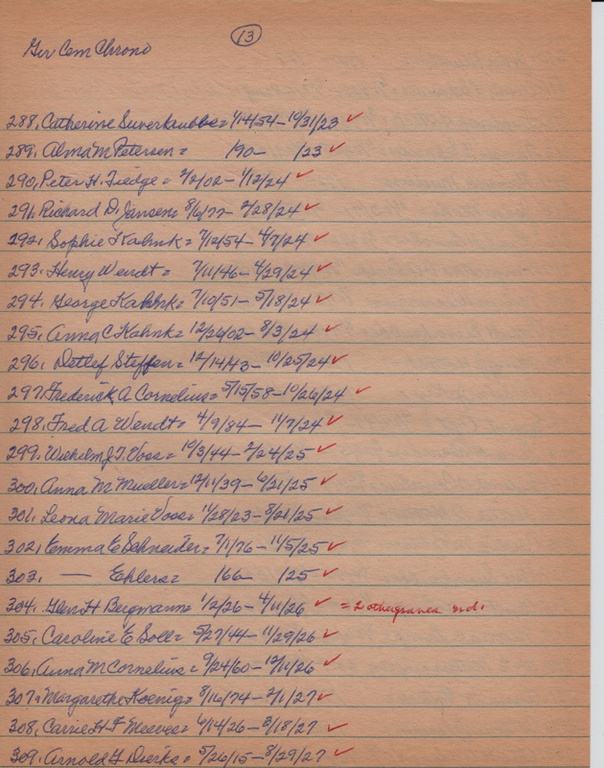 13
Ger Cem Chrono
288. Catherine Suverkrubbe = 1/14/54 - 10/31/23 ✓
289. Alma M Petersen = /90 - /23 ✓
290. Peter H. Tiedge = 2/2/02 - 1/12/24 ✓
291. Richard D. Jansen = 8/6/77 - 2/28/24 ✓
292. Sophie Kahnk = 7/12/54 - 4/7/24 ✓
293. Henry Wendt = 7/11/46 - 4/29/24 ✓
294. George Kahnk = 7/10/51 - 5/18/24 ✓
295. Anna C Kahnk = 12/26/02 - 8/3/24 ✓
296. Detlef Steffen = 12/14/43 - 10/25/24 ✓
297. Frederick A Cornelius = 5/15/58 - 10/26/24 ✓
298. Fred A Wendt = 4/9/84 - 11/7/24 ✓
299. Wilhelm J.T. Voss = 10/3/44 - 2/24/25 ✓
300. Anna M Mueller = 12/11/39 - 6/21/25 ✓
301. Leona Marie Voss = 11/28/23 - 8/21/25 ✓
302. Emma E Schneider = 7/1/76 - 11/5/25 ✓
303. — Ehlers = /66 - /25 ✓
304. Glen H Bergmann = 1/2/26 - 4/11/26 ✓ = 2 other
305. Caroline E Soll = 5/27/44 - 11/29/26 ✓
306. Anna M Cornelius = 9/24/60 - 12/11/26 ✓
307. Margarethe Koenig = 8/16/74 - 2/1/27 ✓
308. Carrie H F Meeves = 6/14/26 - 2/18/27 ✓
309. Arnold F Dierks = 5/26/15 - 8/29/27 ✓